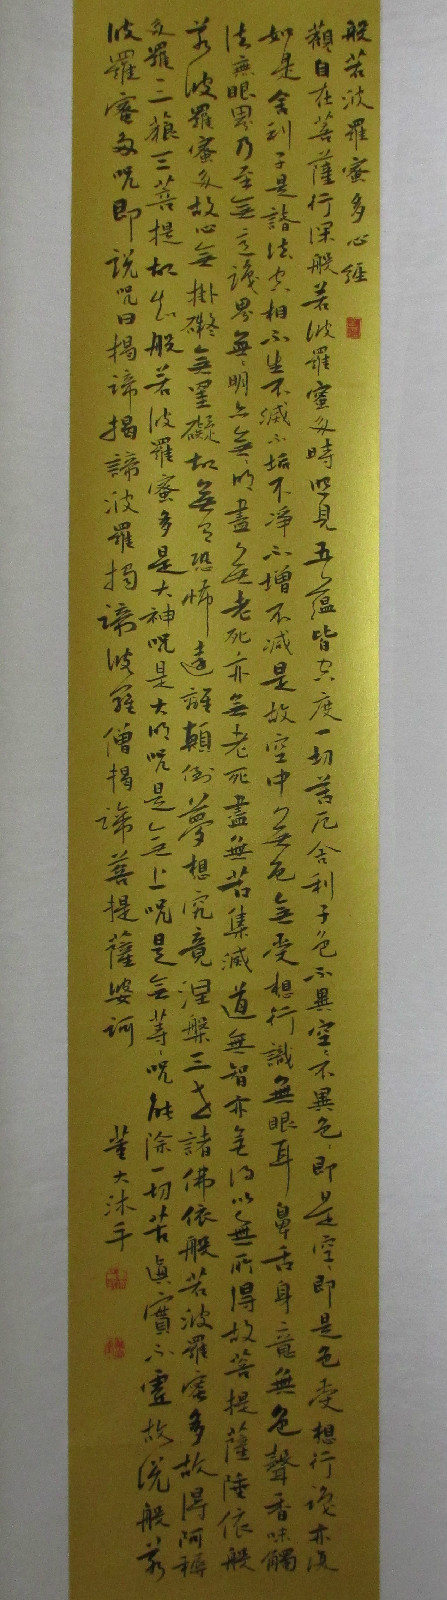 般若波羅蜜多心經
觀自在菩薩行深般若波羅蜜多時照見五蘊皆空度一切苦厄舍利子色不異空空不異色色即是空空即是色受想行識亦復
如是舍利子是諸法空相不生不滅不垢不淨不增不減是故空中無色無受想行識無眼耳鼻舌身意無色聲香味觸
法無眼界乃至無意識界無無明亦無無明盡乃至無老死亦無老死盡無苦集滅道無智亦無得以無所得故菩提薩埵依般
若波羅蜜多故心無掛礙無罣礙故無有恐怖遠離顛倒夢想究竟涅槃三世諸佛依般若波羅蜜多故得阿耨
多羅三藐三菩提故知般若波羅蜜多是大神咒是大明咒是無上咒是無等等咒能除一切苦真實不虛故說般若
波羅蜜多咒即說咒曰揭諦揭諦波羅揭諦波羅僧揭諦菩提薩婆訶
董大沐手